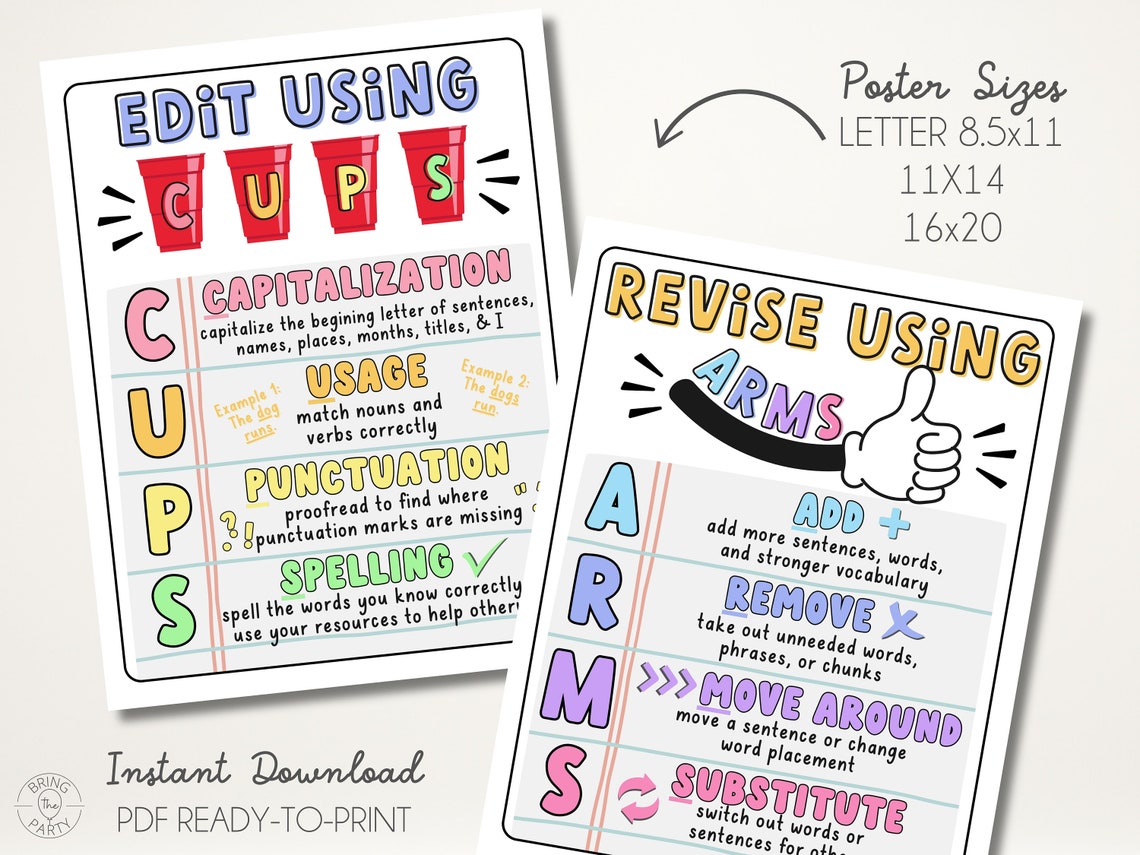 EDiT USiNG
CUPS
C
CAPITALIZATION
capitalize the begining letter of sentences,
names, places, months, titles, & I
U
USAGE
Example 1:
The dog
runs.
match nouns and
verbs correctly
Example 2:
The dogs
run.
P
PUNCTUATION
?!
proofread to find where
punctuation marks are missing
"
S
SPELLING
spell the words you know correctly
use your resources to help
Poster Sizes
LETTER 8.5x11
11X14
16x20
REViSE USiNG
ARMS
A
ADD +
add more sentences, words,
and stronger vocabulary
R
REMOVE X
take out unneeded words,
phrases, or chunks
M
>>>MOVE AROUND
move a sentence or change
word placement
S
SUBSTITUTE
switch out words or
sentences for
Instant Download
PDF READY-TO-PRINT
BRING
the
PARTY